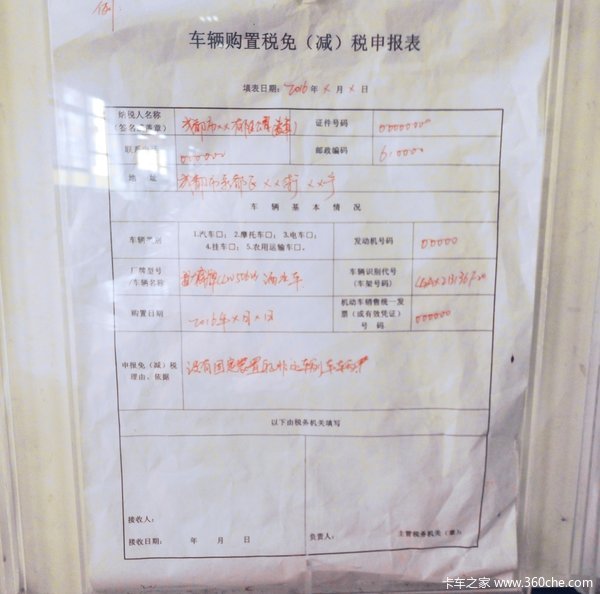 例
车辆购置税免（减）税申报表
填表日期：2016年×月×日
纳税人名称
（签名或盖章）
成都市××有限公司（盖章）
证件号码
00000000
联系电话
000000
邮政编码
610000
地 址
成都市新都区××街××号
车 辆 基 本 情 况
车辆类别
1.汽车□；2.摩托车□；3.电车□；
4.挂车□；5.农用运输车□。
发动机号码
00000
厂牌型号
/车辆名称
洒水车
车辆识别代号
（车架号码）
购置日期
2016年×月×日
机动车销售统一发
票（或有效凭证）
号 码
000000
申报免（减）税
理由、依据
设有固定装置的非运输车辆
以下由税务机关填写
接收人：
接收日期： 年 月 日
负责人：
主管税务机关（章）：
卡车之家 www.360che.com